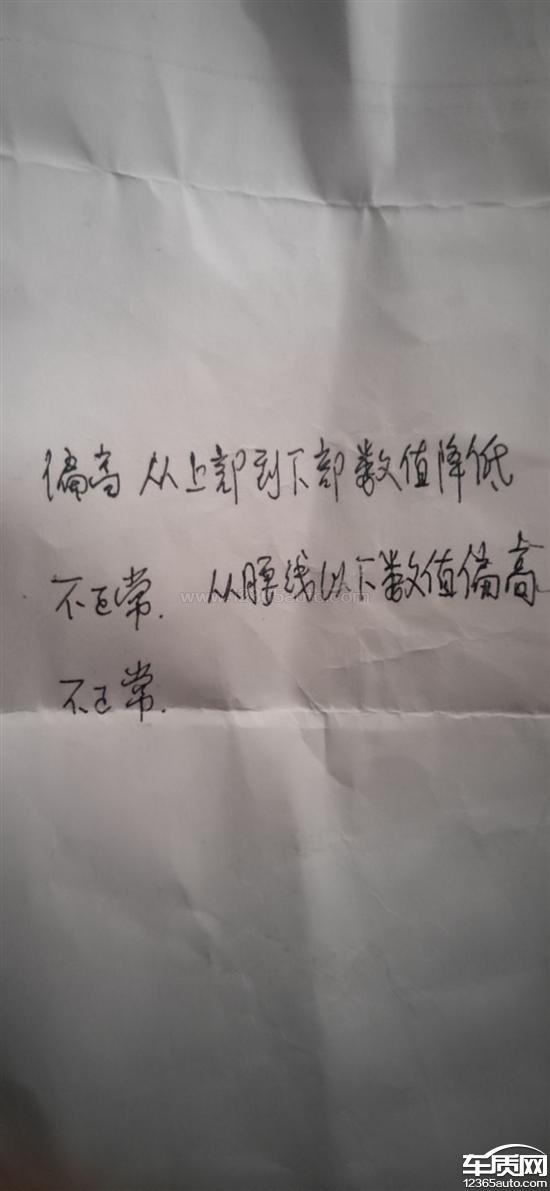 偏高 从上部到下部数值降低
不正常. 从腰线以下数值偏高
不正常.
www.12365auto.com
车质网
12365auto.com